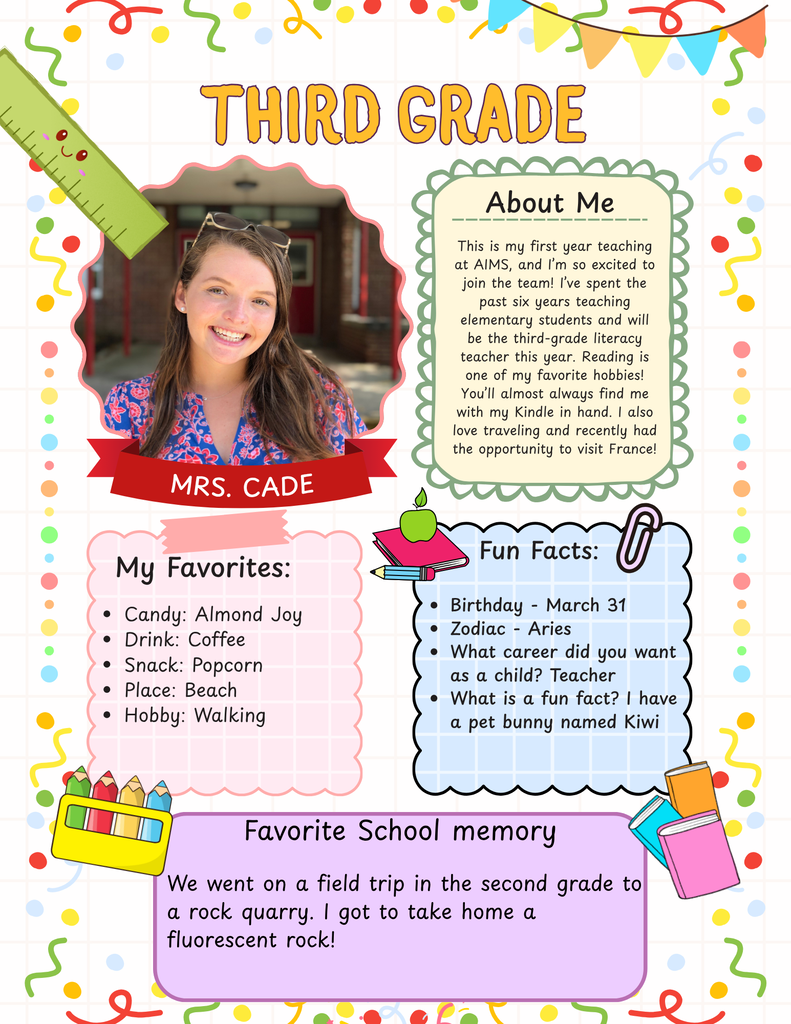 THIRD GRADE
MRS. CADE
About Me
This is my first year teaching
at AIMS, and I'm so excited to
join the team! I've spent the
past six years teaching
elementary students and will
be the third-grade literacy
teacher this year. Reading is
one of my favorite hobbies!
You'll almost always find me
with my Kindle in hand. I also
love traveling and recently had
the opportunity to visit France!
My Favorites:
• Candy: Almond Joy
• Drink: Coffee
• Snack: Popcorn
• Place: Beach
• Hobby: Walking
Fun Facts:
• Birthday - March 31
• Zodiac - Aries
• What career did you want
as a child? Teacher
• What is a fun fact? I have
a pet bunny named Kiwi
Favorite School memory
We went on a field trip in the second grade to
a rock quarry. I got to take home a
fluorescent rock!